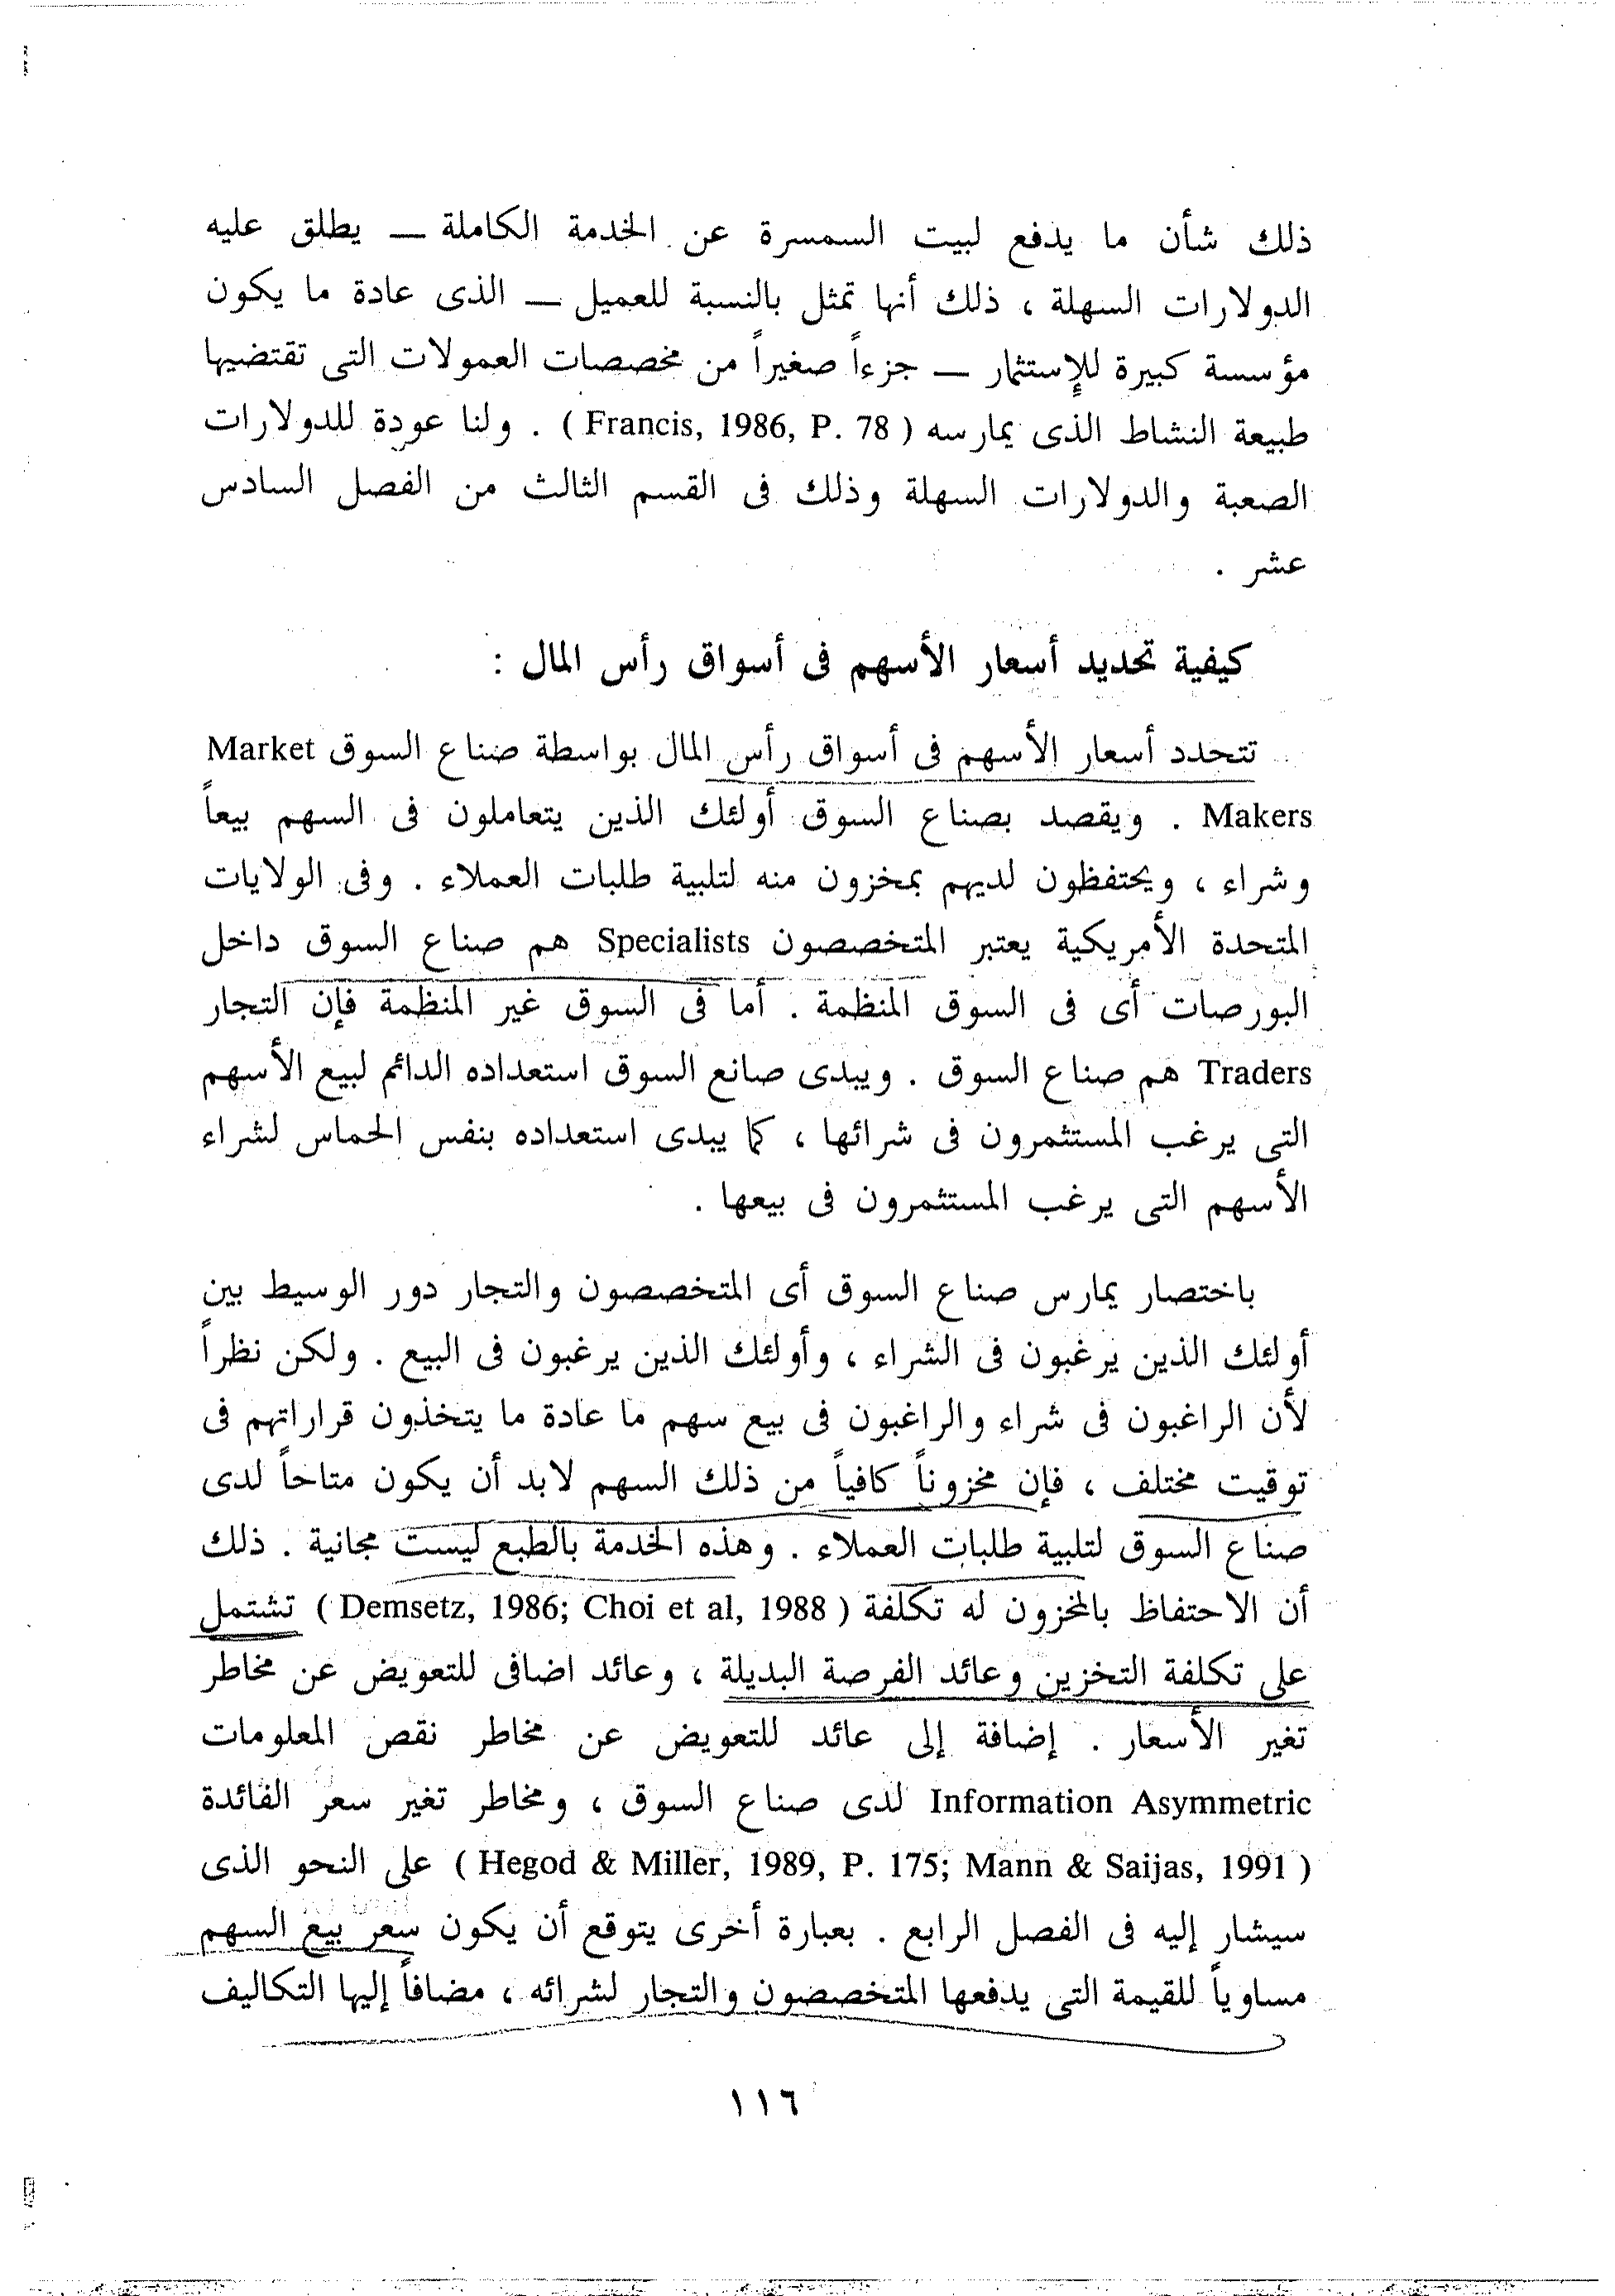 ذلك شأن ما يدفع لبيت السمسرة عن الخدمة الكاملة — يطلق عليه
الدولارات السهلة ، ذلك أنها تمثل بالنسبة للعميل — الذى عادة ما يكون
مؤسسة كبيرة للإستثمار — جزءاً صغيراً من مخصصات العمولات التى تقتضيها
طبيعة النشاط الذى يمارسه ( Francis, 1986, P. 78 ) . ولنا عودة للدولارات
الصعبة والدولارات السهلة وذلك فى القسم الثالث من الفصل السادس
عشر .
كيفية تحديد أسعار الأسهم فى أسواق رأس المال :
تتحدد أسعار الأسهم فى أسواق رأس المال بواسطة صناع السوق Market
Makers . ويقصد بصناع السوق أولئك الذين يتعاملون فى السهم بيعاً
وشراء ، ويحتفظون لديهم بمخزون منه لتلبية طلبات العملاء . وفى الولايات
المتحدة الأمريكية يعتبر المتخصصون Specialists هم صناع السوق داخل
البورصات أى فى السوق المنظمة . أما فى السوق غير المنظمة فإن التجار
Traders هم صناع السوق . ويبدى صانع السوق استعداده الدائم لبيع الأسهم
التى يرغب المستثمرون فى شرائها ، كما يبدى استعداده بنفس الحماس لشراء
الأسهم التى يرغب المستثمرون فى بيعها .
باختصار يمارس صناع السوق أى المتخصصون والتجار دور الوسيط بين
أولئك الذين يرغبون فى الشراء ، وأولئك الذين يرغبون فى البيع . ولكن نظراً
لأن الراغبون فى شراء والراغبون فى بيع سهم ما عادة ما يتخذون قراراتهم فى
توقيت مختلف ، فإن مخزوناً كافياً من ذلك السهم لابد أن يكون متاحاً لدى
صناع السوق لتلبية طلبات العملاء . وهذه الخدمة بالطبع ليست مجانية . ذلك
أن الاحتفاظ بالمخزون له تكلفة ( Demsetz, 1986; Choi et al, 1988 ) تشتمل
على تكلفة التخزين وعائد الفرصة البديلة ، وعائد اضافى للتعويض عن مخاطر
تغير الأسعار . إضافة إلى عائد للتعويض عن مخاطر نقص المعلومات
Information Asymmetric لدى صناع السوق ، ومخاطر تغير سعر الفائدة
( Hegod & Miller, 1989, P. 175; Mann & Saijas, 1991 ) على النحو الذى
سيشار إليه فى الفصل الرابع . بعبارة أخرى يتوقع أن يكون سعر بيع السهم
مساوياً للقيمة التى يدفعها المتخصصون والتجار لشرائه ، مضافاً إليها التكاليف
١١٦